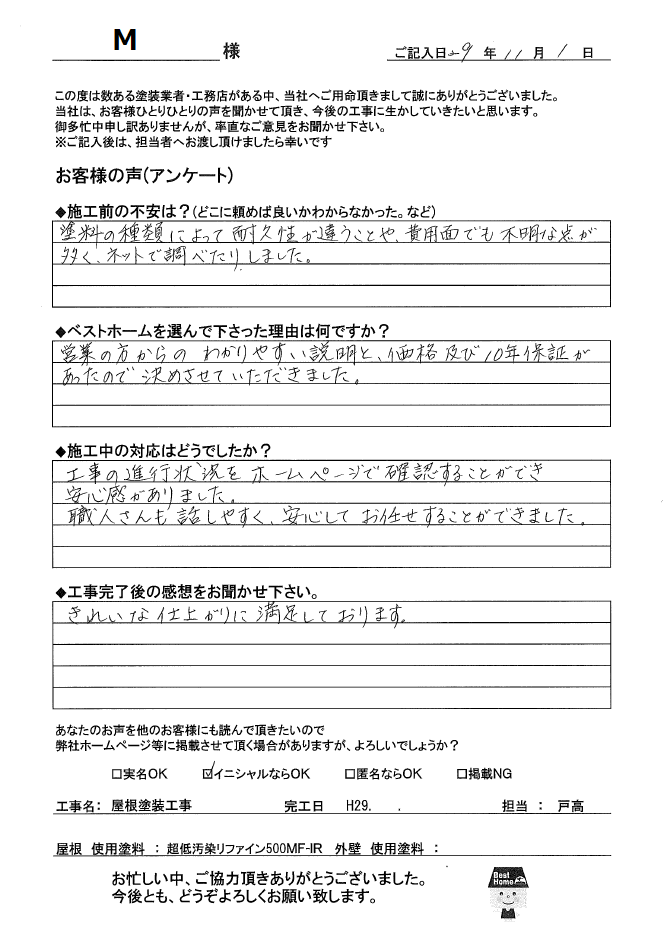 M 様
ご記入日 29 年 11 月 1 日
この度は数ある塗装業者・工務店がある中、当社へご用命頂きまして誠にありがとうございました。
当社は、お客様ひとりひとりの声を聞かせて頂き、今後の工事に生かしていきたいと思います。
御多忙中申し訳ありませんが、率直なご意見をお聞かせ下さい。
※ご記入後は、担当者へお渡し頂けましたら幸いです
お客様の声(アンケート)
◆施工前の不安は？(どこに頼めば良いかわからなかった。など)
塗料の種類によって耐久性が違うことや、費用面でも不明な点が
多く、ネットで調べたりしました。
◆ベストホームを選んで下さった理由は何ですか？
営業の方からの わかりやすい説明と、価格及び10年保証が
あったので決めさせていただきました。
◆施工中の対応はどうでしたか？
工事の進行状況をホームページで確認することができ
安心感がありました。
職人さんも話しやすく、安心してお任せすることができました。
◆工事完了後の感想をお聞かせ下さい。
きれいな仕上がりに満足しております。
あなたのお声を他のお客様にも読んで頂きたいので
弊社ホームページ等に掲載させて頂く場合がありますが、よろしいでしょうか？
□実名OK ☑イニシャルならOK □匿名ならOK □掲載NG
工事名： 屋根塗装工事 完工日 H29. . 担当 ： 戸高
屋根 使用塗料 ： 超低汚染リファイン500MF-IR 外壁 使用塗料 ：
お忙しい中、ご協力頂きありがとうございました。
今後とも、どうぞよろしくお願い致します。
Best
Home